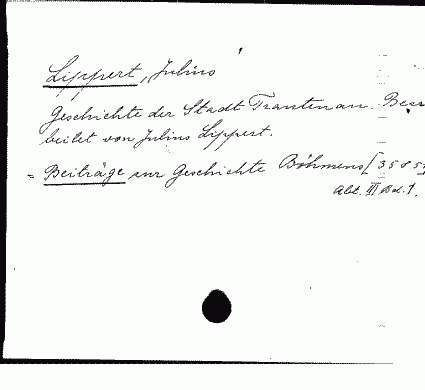 Lippert, Julius
Geschichte der Stadt Trautenau. Bear
beitet von Julius Lippert.
= Beiträge zur Geschichte Böhmens [3585
Abt. III Bd. 1.